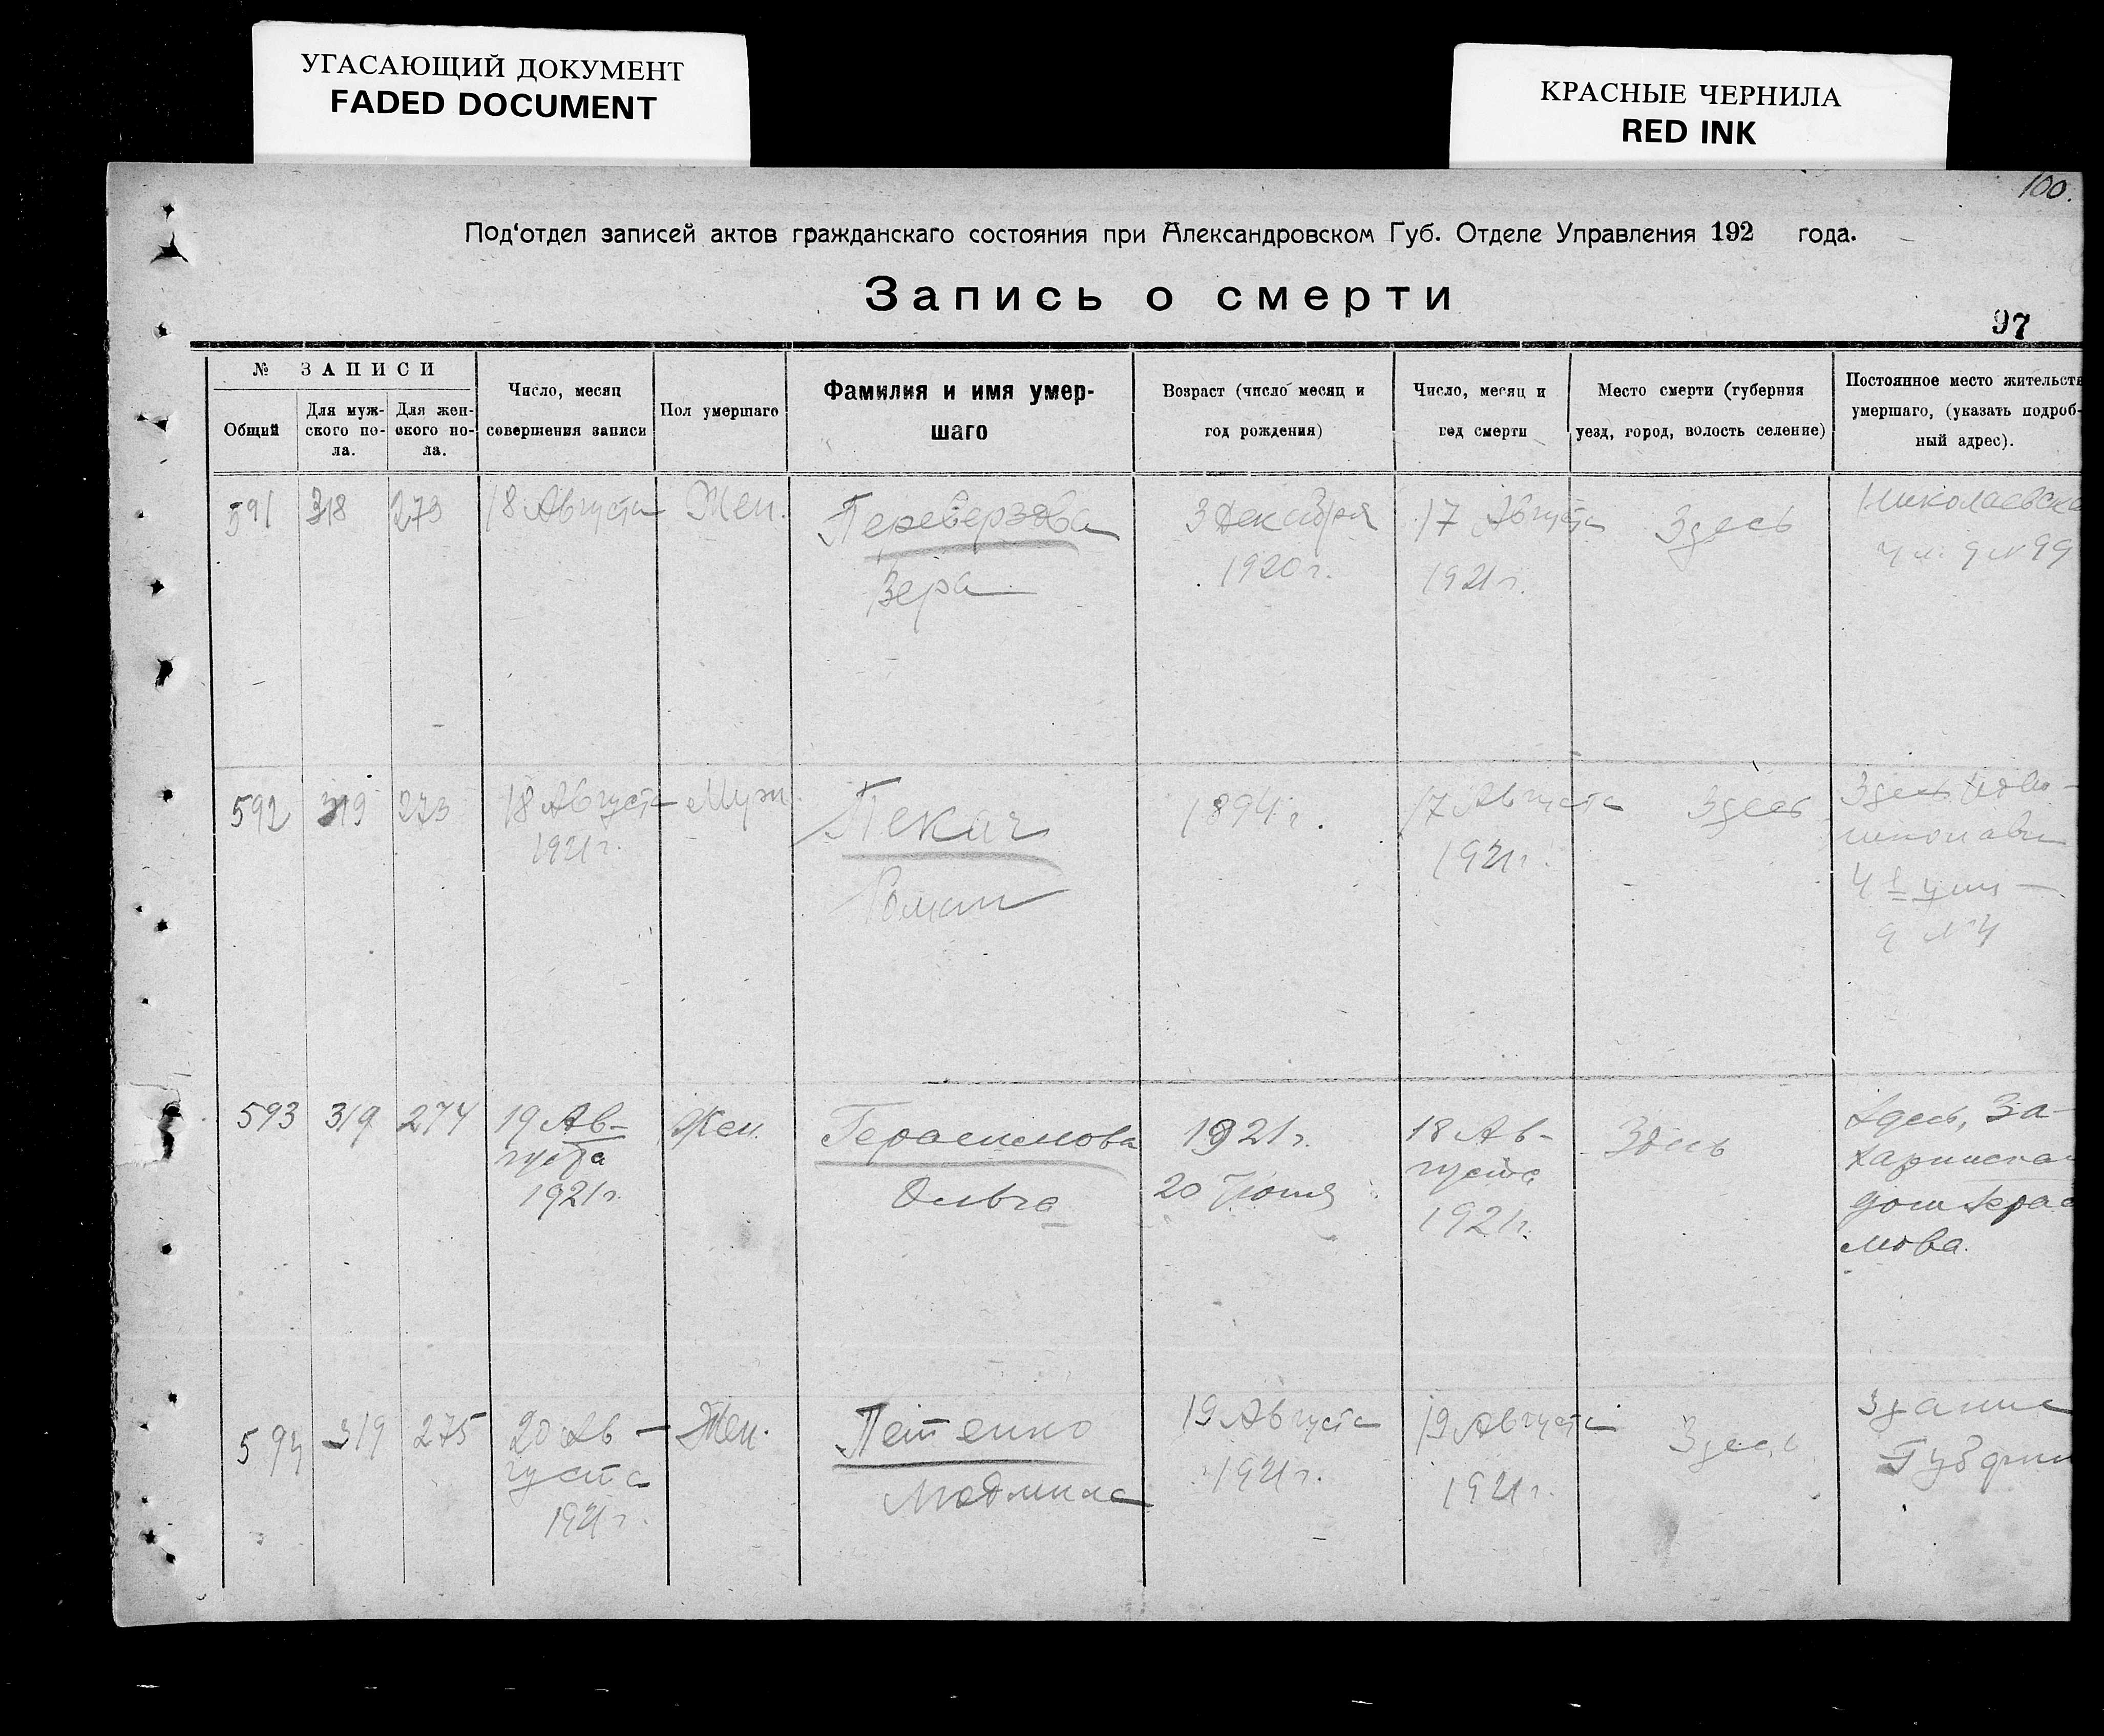 УГАСАЮЩИЙ ДОКУМЕНТ
FADED DOCUMENT
КРАСНЫЕ ЧЕРНИЛА
RED INK
100.
Под‘отдел записей актов гражданскаго состояния при Александровском Губ. Отделе Управления 192 года.
Запись о смерти
97
№ ЗАПИСИ
Общий
Для муж-
ского по-
ла.
Для жен-
ского по-
ла.
Число, месяц
совершения записи
Пол умершаго
Фамилия и имя умер-
шаго
Возраст (число месяц и
год рождения)
Число, месяц и
год смерти
Место смерти (губерния
уезд, город, волость селение)
Постоянное место жительств
умершаго, (указать подроб-
ный адрес).
591
318
18 Августа
Жен.
Вера
3 Декабря
1920 г.
17 Августа
1921 г.
Здесь
Николаевска
ул. д № 99
592
319
273
18 Августа
1921 г.
Муж.
Пекач
Роман
1894 г.
17 Августа
1921 г.
Здесь
593
319
274
19 Ав-
густа
1921 г.
Жен.
Герасимова
Ольга
1921 г.
20 Июня
18 Ав-
густа
1921 г.
Здесь
Здесь, За-
дом Герас
мова.
594
319
275
20 Ав-
густа
1921 г.
Жен.
Петенко
Людмила
19 Августа
1921 г.
19 Августа
1921 г.
Здесь
Здание